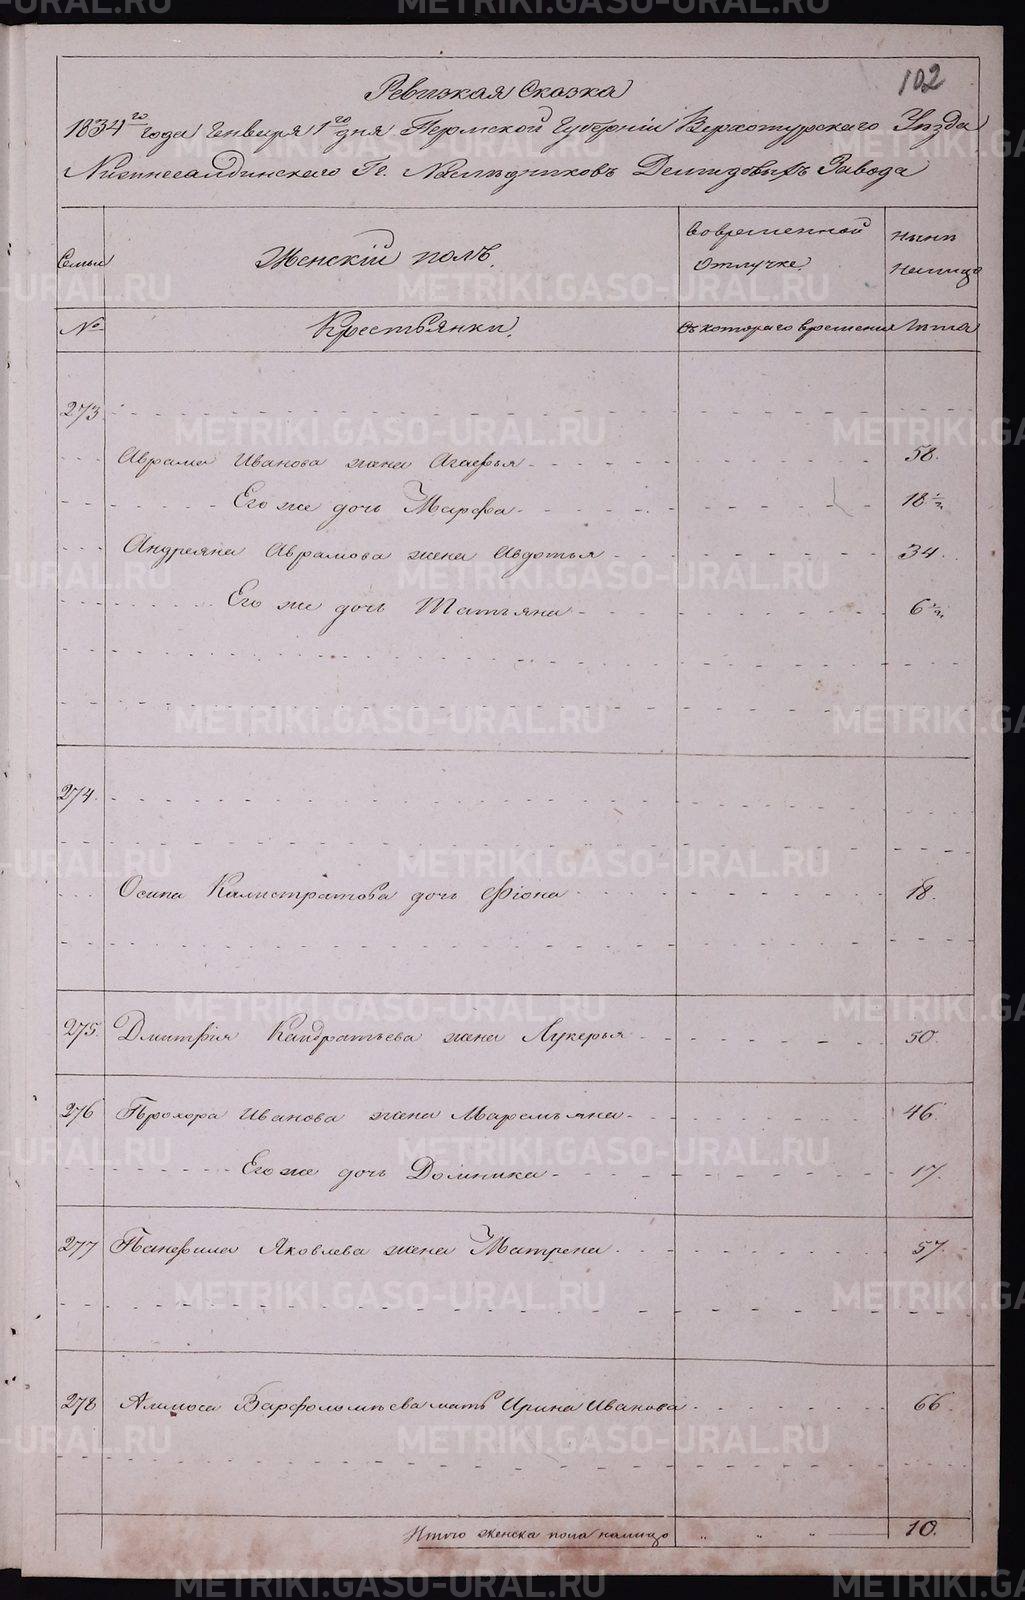 102
Ревизкая Сказка
1834го года Генваря 1го дня Пермской Губернiи Верхотурскаго Уѣзда
Нижнесалдинскаго Гг. Наслѣдниковъ Демидовыхъ Завода
Семьи
Женскiй полъ.
Во временной отлучке
Нынѣ на лицо
№
Крестьянки.
Съ котораго времени
Лѣта
273
Аврама Иванова жена Агафья 58.
Его же дочь Марфа 18 1/2
Андреяна Аврамова жена Авдотья 34.
Его же дочь Татьяна 6 1/2
274.
Осипа Калистратова дочь Фiона 18.
275. Дмитрiя Кандратьева жена Лукерья 50.
276 Прохора Иванова жена Маремьяна 46.
Его же дочь Домника 17.
277 Панфила Яковлева жена Матрена 57.
278 Амоса Варфоломѣева мать Ирина Иванова 66.
Итого женска пола налицо " " " 10.
METRIKI.GASO-URAL.RU